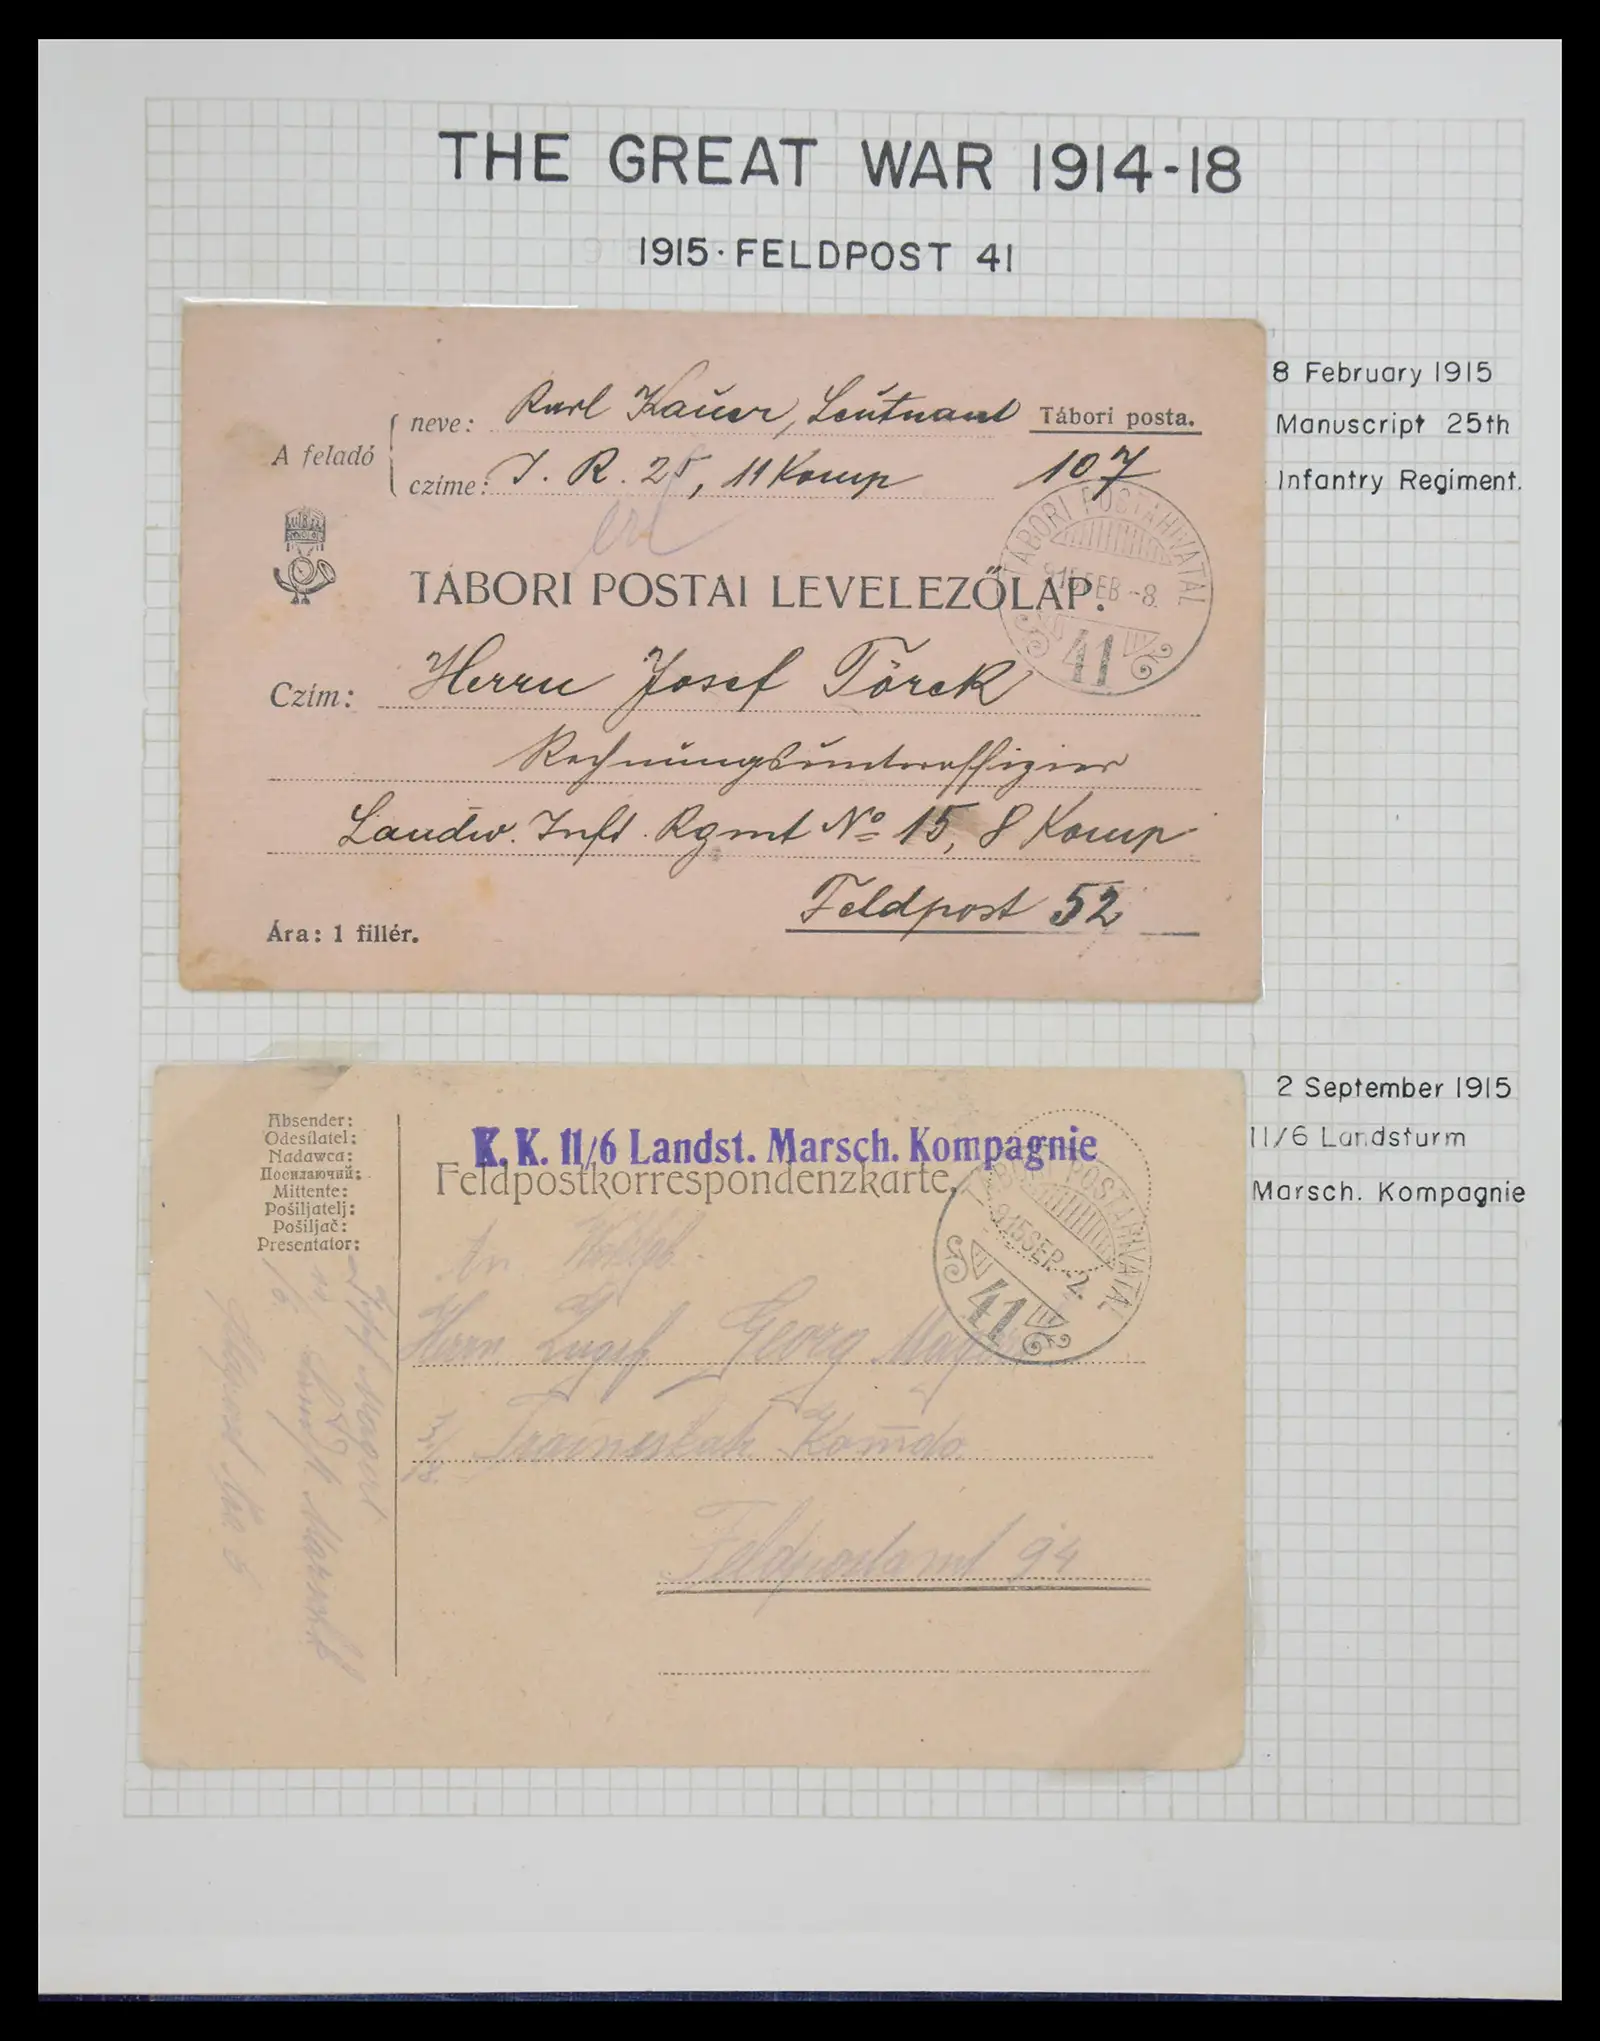 THE GREAT WAR 1914-18
1915·FELDPOST 41
8 February 1915
Manuscript 25th
Infantry Regiment.
A feladó
neve: Karl Kauer, Leutnant
czime: I. R. 25, 11 Komp
Tábori posta.
107
TÁBORI POSTAHIVATAL
915 FEB -8.
41
TÁBORI POSTAI LEVELEZŐLAP.
Czím: Herrn Josef Török
Rechnungsunteroffizier
Landw. Inft. Rgmt No 15, 8 Komp
Feldpost 52
Ára: 1 fillér.
2 September 1915
11/6 Landsturm
Marsch. Kompagnie
Absender:
Odesílatel:
Nadawca:
Посилаючий:
Mittente:
Pošiljatelj:
Pošiljač:
Presentator:
K. K. 11/6 Landst. Marsch. Kompagnie
Feldpostkorrespondenzkarte.
TÁBORI POSTAHIVATAL
915 SEP. -2.
41
An
Herrn Zugsf. Georg
Komdo
Feldpostamt 94